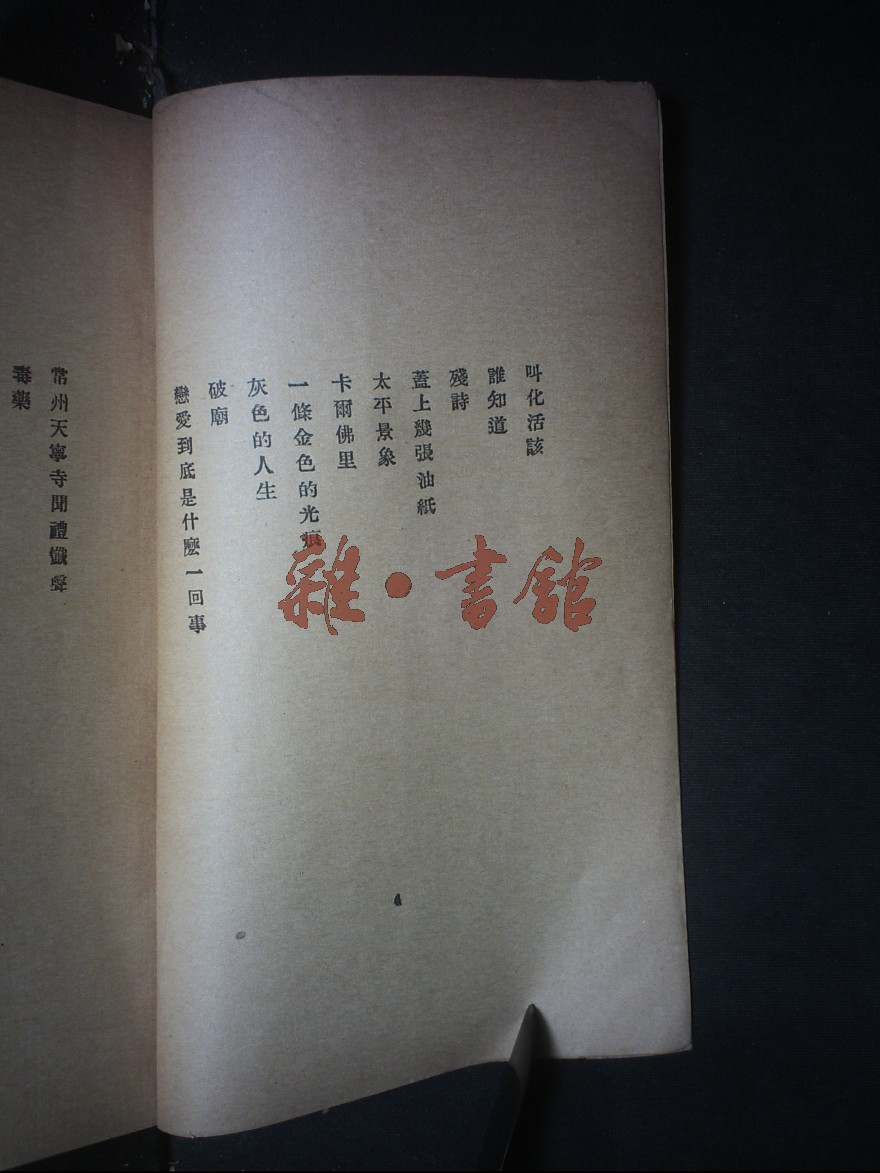 叫化活該
誰知道
殘詩
蓋上幾張油紙
太平景象
卡爾佛里
一條金色的光痕
灰色的人生
破廟
戀愛到底是什麼一回事
常州天寧寺聞禮懺聲
毒藥
雜·書館